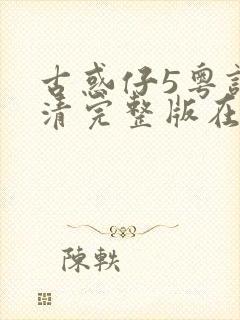 古惑仔5粤
清完整版在
陳軼